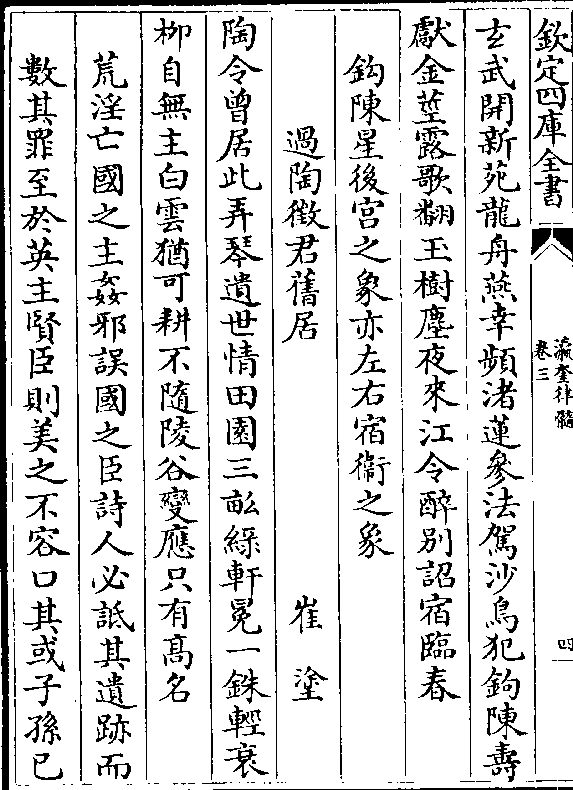 欽定四庫全書
瀛奎律髓
卷三
四
玄武開新苑龍舟燕幸頻渚蓮參法駕沙鳥犯鉤陳壽
獻金莖露歌翻玉樹塵夜來江令醉别詔宿臨春
鈎陳星後宫之象亦左右宿衞之象
過陶徵君舊居
崔塗
陶令曾居此弄琴遺世情田園三畝緑軒冕一銖輕衰
柳自無主白雲猶可耕不隨陵谷變應只有髙名
荒淫亡國之主姦邪誤國之臣詩人必詆其遺跡而
數其罪至於英主賢臣則美之不容口其或子孫已